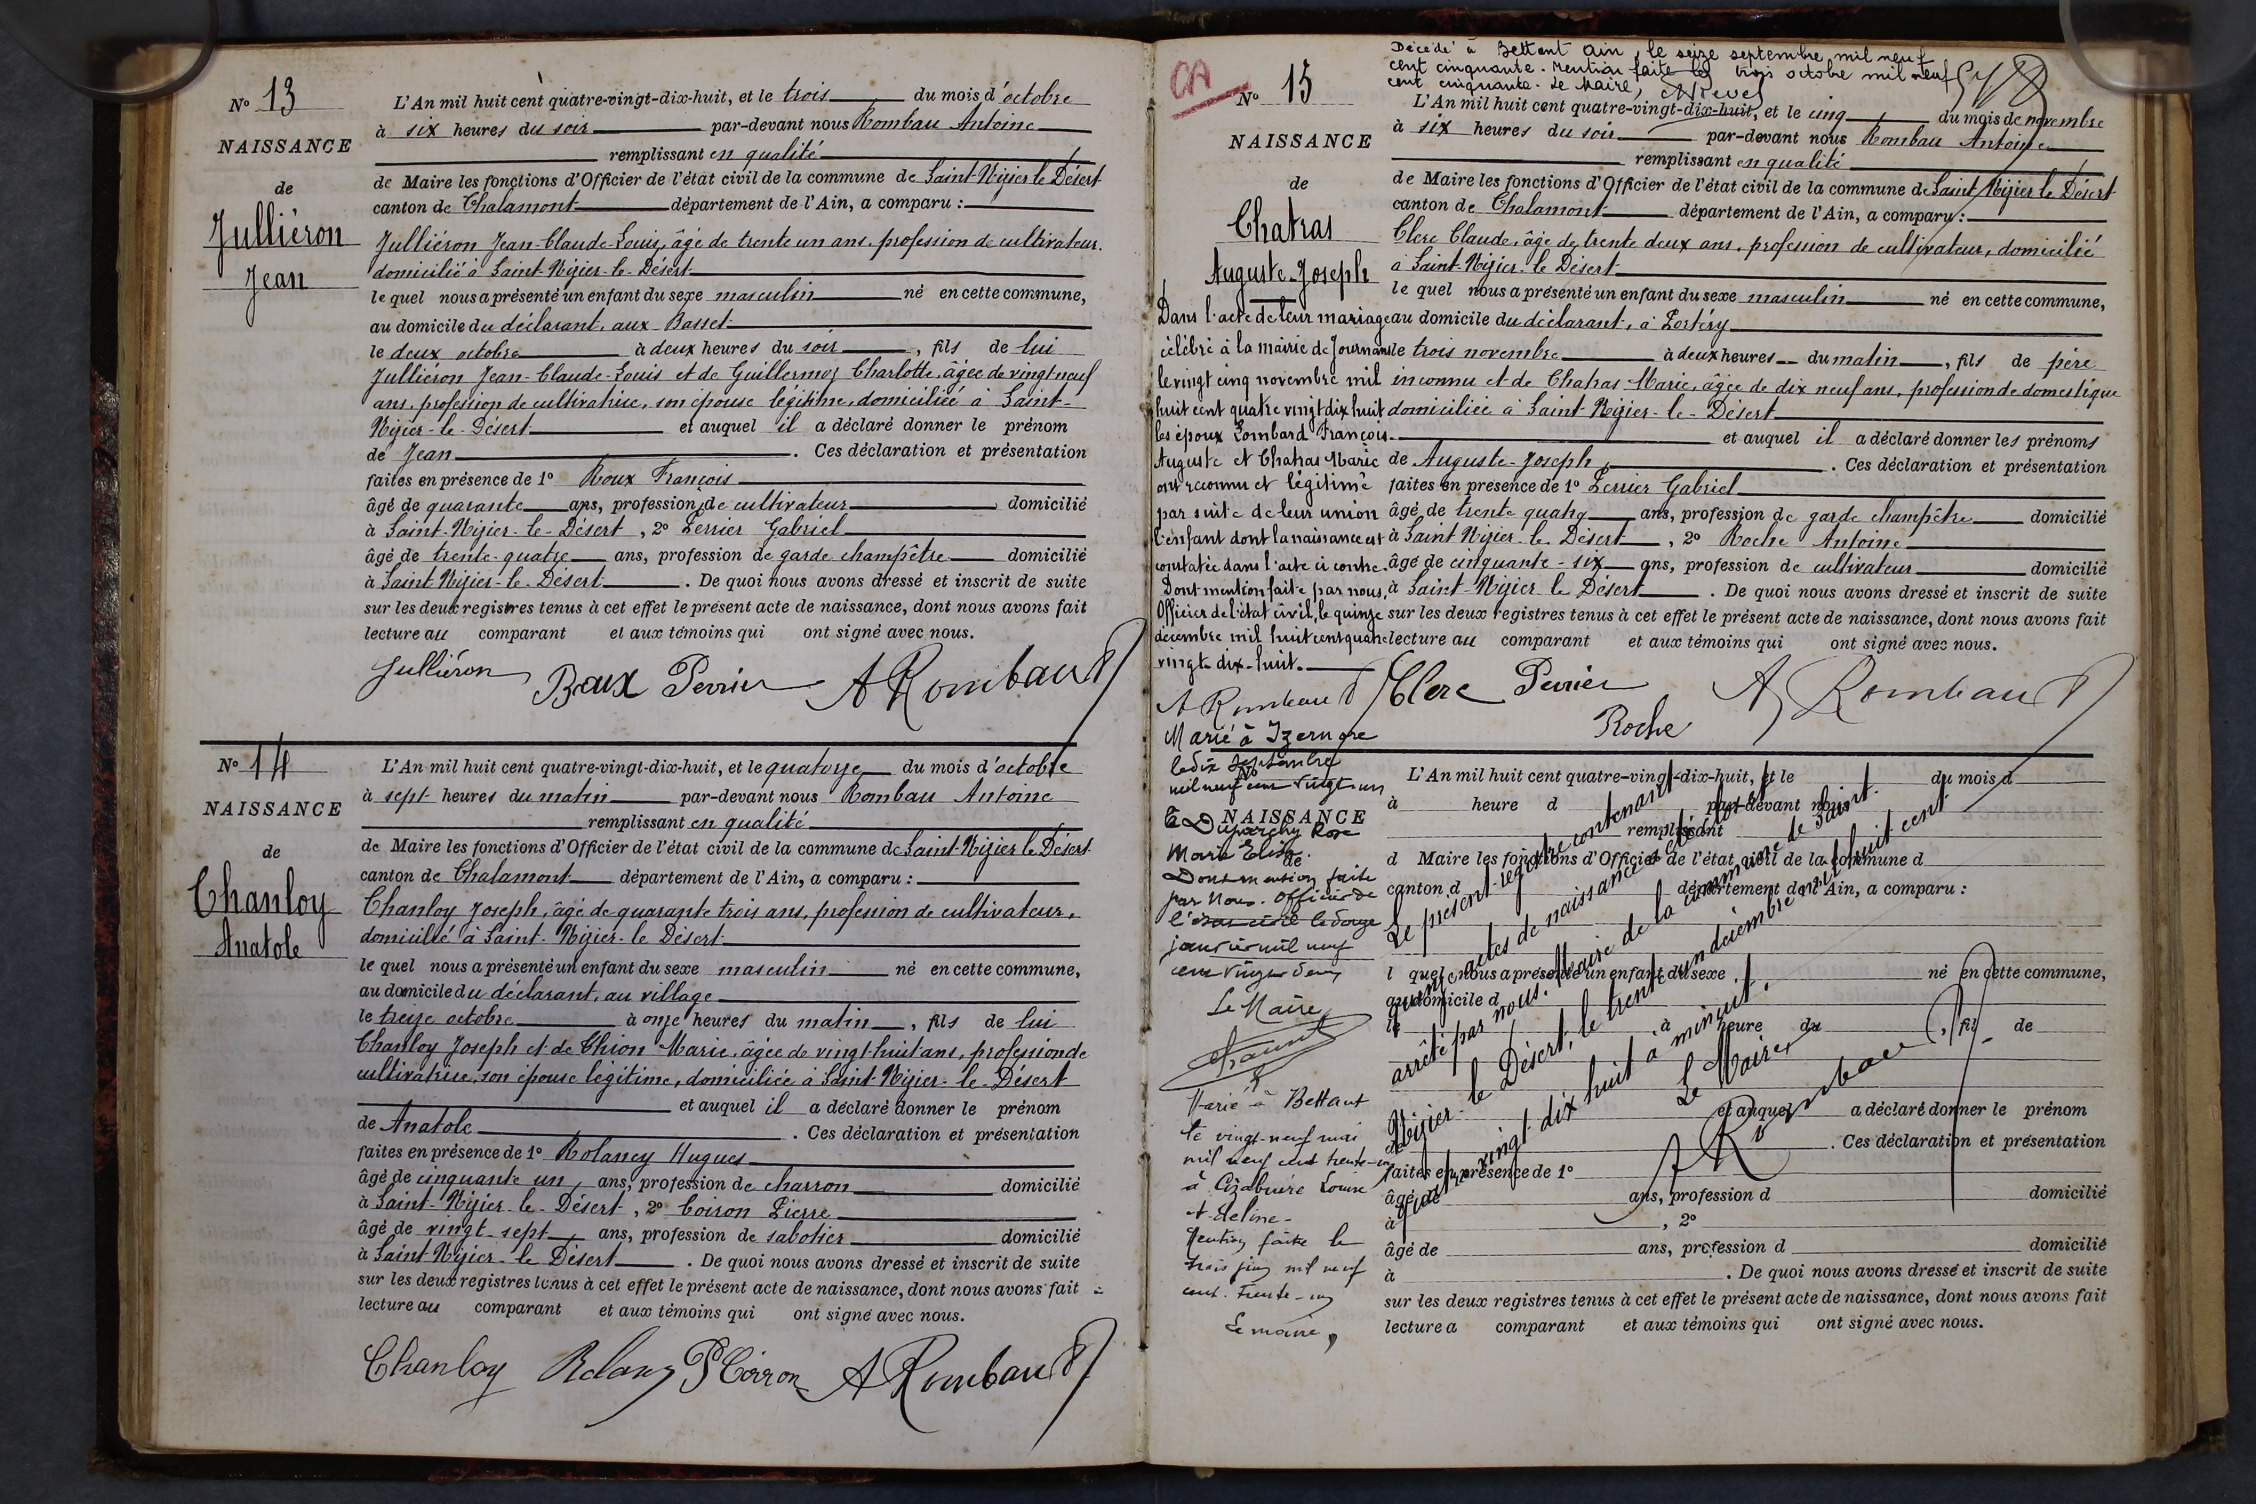 N° 13
NAISSANCE
de
Julliéron
Jean
L'An mil huit cent quatre-vingt-dix-huit, et le trois du mois d'octobre
à six heures du soir par-devant nous Rombau Antoine
remplissant en qualité
de Maire les fonctions d'Officier de l'état civil de la commune de Saint-Nizier le Désert
canton de Chalamont département de l'Ain, a comparu :
Julliéron Jean-Claude-Louis, âgé de trente un ans, profession de cultivateur,
domicilié à Saint-Nizier-le-Désert
le quel nous a présenté un enfant du sexe masculin né en cette commune,
au domicile du déclarant, aux Basset
le deux octobre à deux heures du soir, fils de lui
Julliéron Jean-Claude-Louis et de Guillermoz Charlotte, âgée de vingt neuf
ans, profession de cultivatrice, son épouse légitime, domiciliée à Saint-
Nizier-le-Désert et auquel il a déclaré donner le prénom
de Jean. Ces déclaration et présentation
faites en présence de 1° Roux François
âgé de quarante ans, profession de cultivateur domicilié
à Saint-Nizier-le-Désert, 2° Perrier Gabriel
âgé de trente-quatre ans, profession de garde champêtre domicilié
à Saint-Nizier-le-Désert. De quoi nous avons dressé et inscrit de suite
sur les deux registres tenus à cet effet le présent acte de naissance, dont nous avons fait
lecture au comparant et aux témoins qui ont signé avec nous.
Julliéron Roux Perrier A Rombau
N° 14
NAISSANCE
de
Chanloy
Anatole
L'An mil huit cent quatre-vingt-dix-huit, et le quatorze du mois d'octobre
à sept heures du matin par-devant nous Rombau Antoine
remplissant en qualité
de Maire les fonctions d'Officier de l'état civil de la commune de Saint-Nizier le Désert
canton de Chalamont département de l'Ain, a comparu :
Chanloy Joseph, âgé de quarante trois ans, profession de cultivateur,
domicilié à Saint-Nizier-le-Désert
le quel nous a présenté un enfant du sexe masculin né en cette commune,
au domicile du déclarant, au village
le treize octobre à onze heures du matin, fils de lui
Chanloy Joseph et de Chion Marie, âgée de vingt-huit ans, profession de
cultivatrice, son épouse légitime, domiciliée à Saint-Nizier-le-Désert
et auquel il a déclaré donner le prénom
de Anatole. Ces déclaration et présentation
faites en présence de 1° Rolancy Hugues
âgé de cinquante un ans, profession de charron domicilié
à Saint-Nizier-le-Désert, 2° Coiron Pierre
âgé de vingt-sept ans, profession de sabotier domicilié
à Saint-Nizier-le-Désert. De quoi nous avons dressé et inscrit de suite
sur les deux registres tenus à cet effet le présent acte de naissance, dont nous avons fait
lecture au comparant et aux témoins qui ont signé avec nous.
Chanloy Rolancy P Coiron A Rombau
Décédé à Bettant Ain, le seize septembre mil neuf
cent cinquante. Mention faite le trois octobre mil neuf
cent cinquante. Le Maire,
CA
N° 15
NAISSANCE
de
Chatras
Auguste-Joseph
L'An mil huit cent quatre-vingt-dix-huit, et le cinq du mois de novembre
à six heures du soir par-devant nous Rombau Antoine
remplissant en qualité
de Maire les fonctions d'Officier de l'état civil de la commune de Saint-Nizier le Désert
canton de Chalamont département de l'Ain, a comparu :
Clerc Claude, âgé de trente deux ans, profession de cultivateur, domicilié
à Saint-Nizier-le-Désert
le quel nous a présenté un enfant du sexe masculin né en cette commune,
au domicile du déclarant, à
le trois novembre à deux heures du matin, fils de père
inconnu et de Chatras Marie, âgée de dix neuf ans, profession de domestique
domiciliée à Saint-Nizier-le-Désert
et auquel il a déclaré donner les prénoms
de Auguste-Joseph. Ces déclaration et présentation
faites en présence de 1° Perrier Gabriel
âgé de trente quatre ans, profession de garde champêtre domicilié
à Saint-Nizier-le-Désert, 2° Roche Antoine
âgé de cinquante-six ans, profession de cultivateur domicilié
à Saint-Nizier le Désert. De quoi nous avons dressé et inscrit de suite
sur les deux registres tenus à cet effet le présent acte de naissance, dont nous avons fait
lecture au comparant et aux témoins qui ont signé avec nous.
Clerc Perrier A Rombau
Roche
Dans l'acte de leur mariage
célébré à la mairie de Journans
le vingt cinq novembre mil
huit cent quatre vingt dix huit
les époux Lombard François-
Auguste et Chatras Marie
ont reconnu et légitimé
par suite de leur union
l'enfant dont la naissance est
constatée dans l'acte ci contre.
Dont mention faite par nous,
Officier de l'état civil, le quinze
décembre mil huit cent quatre
vingt-dix-huit.
A Rombau
Marié à Izernore
le dix septembre
mil neuf cent vingt un
à Duparchy Rose
Marie Elisa.
Dont mention faite
par nous. Officier de
l'état civil le douze
janvier mil neuf
cent vingt deux
Le Maire
Marié à Bettant
le vingt-neuf mai
mil neuf cent trente-un
à Louise
Adeline-
Mention faite le
trois juin mil neuf
cent trente-un
Le maire,
N°
NAISSANCE
de
L'An mil huit cent quatre-vingt-dix-huit, et le du mois d
à heure d par-devant nous
remplissant
d Maire les fonctions d'Officier de l'état civil de la commune d
canton d département de l'Ain, a comparu :
l quel nous a présenté un enfant du sexe né en cette commune,
au domicile d
le à heure du , fil de
et auquel a déclaré donner le prénom
de . Ces déclaration et présentation
faites en présence de 1°
âgé de ans, profession d domicilié
à , 2°
âgé de ans, profession d domicilié
à . De quoi nous avons dressé et inscrit de suite
sur les deux registres tenus à cet effet le présent acte de naissance, dont nous avons fait
lecture a comparant et aux témoins qui ont signé avec nous.
Le présent registre contenant
quinze actes de naissance a été clos et
arrêté par nous. Maire de la commune de Saint-
Nizier-le Désert, le trente un décembre mil huit cent
quatre vingt dix huit à minuit.
Le Maire,
A Rombau